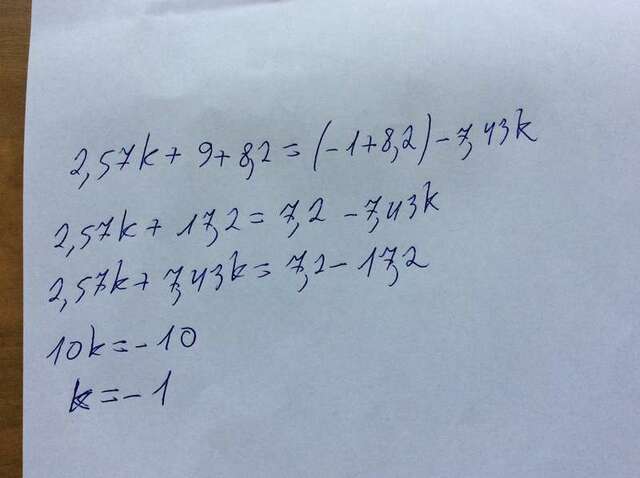 2,57k + 9 + 8,2 = (-1 + 8,2) - 7,43k
2,57k + 17,2 = 7,2 - 7,43k
2,57k + 7,43k = 7,2 - 17,2
10k = -10
k = -1